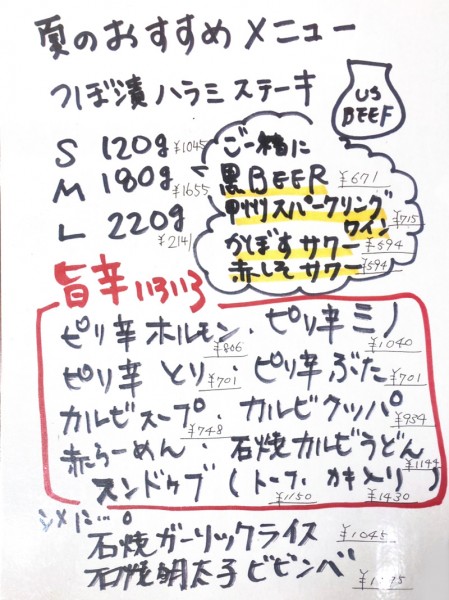 夏のおすすめメニュー
つぼ漬ハラミステーキ
US
BEEF
S 120g ¥1045
M 180g ¥1655
L 220g ¥2141
ご一緒に
黒BEER ¥671
甲州スパークリング
ワイン ¥715
かぼすサワー ¥594
赤しそサワー ¥594
旨辛いろいろ
ピリ辛ホルモン ¥806・ピリ辛ミノ ¥1040
ピリ辛とり ¥701・ピリ辛ぶた ¥701
カルビスープ ¥748・カルビクッパ ¥934
赤らーめん・石焼カルビうどん ¥1144
スンドゥブ(トーフ ¥1150・カキ入り ¥1430)
シメに…。
石焼ガーリックライス ¥1045
石焼明太子ビビンバ